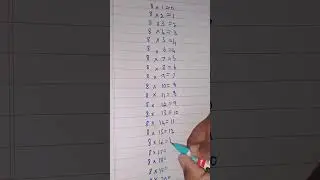 8 × 1 = 0
8 × 2 = 1
8 × 3 = 2
8 × 4 = 3
8 × 5 = 4
8 × 6 = 4
8 × 7 = 5
8 × 8 = 6
8 × 9 = 7
8 × 10 = 8
8 × 11 = 8
8 × 12 = 9
8 × 13 = 10
8 × 14 = 11
8 × 15 = 12
8 × 16 = 1
8 × 17 =
8 × 18 =
8 × 19 =
8 × 20 =